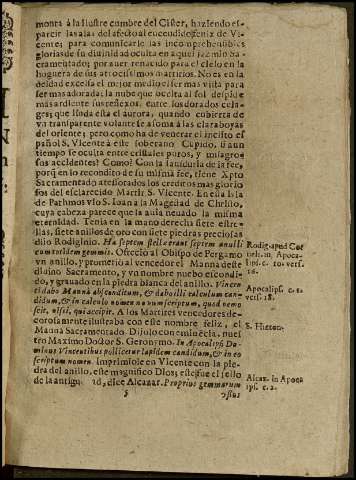 monta à la ilustre cumbre del Cister, haziendo es-
parcir las alas del afecto al encendido fenix de Vi-
cente; para comunicarle las incomprehensibles
glorias de su divinidad oculta en aquel jazmin Sa-
cramentado; por auer renacido para el cielo en la
hoguera de sus atrocissimos martirios. No es en la
deidad excelsa el mejor medio el ser mas vista para
ser mas adorada; la nube que oculta al sol despide
mas ardiente sus reflexos, entre los dorados cela-
ges; que linda esta el aurora, quando cubierta de
vn transparente volante se asoma à las claraboyas
del oriente; pero como ha de venerar el inclito es-
pañol S. Vicente à este soberano Cupido, si aun
tiempo se oculta entre cristales puros, y milagro-
sos accidentes? Como? Con la sabiduria de la fee,
porq̃ en lo recondito de su misma fee, tiene Xpto
Sacramentado atesorados los creditos mas glorio-
sos del esclarecido Martir S. Vicente. En essa Isla
de Pathmos vio S. Ioan a la Magestad de Christo,
cuya cabeza parece que la auia neuado la misma
eternidad. Tenia en la mano derecha siete estre-
llas, siete anillos de oro con siete piedras preciosas
dijo Rodiginio. Hæ septem stellæ erant septem anulli
cum totidem gemmis. Ofrecio al Obispo de Pergamo
vn anillo, y prometio al vencedor el Manna deste
diuino Sacramento, y vn nombre nuebo escondi-
do, y grauado en la piedra blanca del anillo. Vincen-
ti dabo Manna absconditum, & dabo illi calculum can-
didum, & in calculo nomen nouum scriptum, quod nemo
scit, nisi, qui accipit. A los Martires vencedores de-
corosamente ilustraba con este nombre feliz, el
Manna Sacramentado. Dijolo con eminẽcia, nues-
tro Maximo Doctor S. Geronymo. In Apocalipsi Do-
minus Vincentibus pollicetur lapidem candidum, & in eo
scriptum nomen. Imprimiole en Vicente con la pie-
dra del anillo, este magnifico Dios; este fue el sello
de la antigu d, dice Alcazar. Proprius gemmarum
§ vsus
Rodig. apud Cor
nelium. in Apoca-
lips. c. 10. vers.
16.
Apocalips. c. 2.
vers. 18.
S. Hieron.
Alcaz. in Apoca
ips. c. 2.